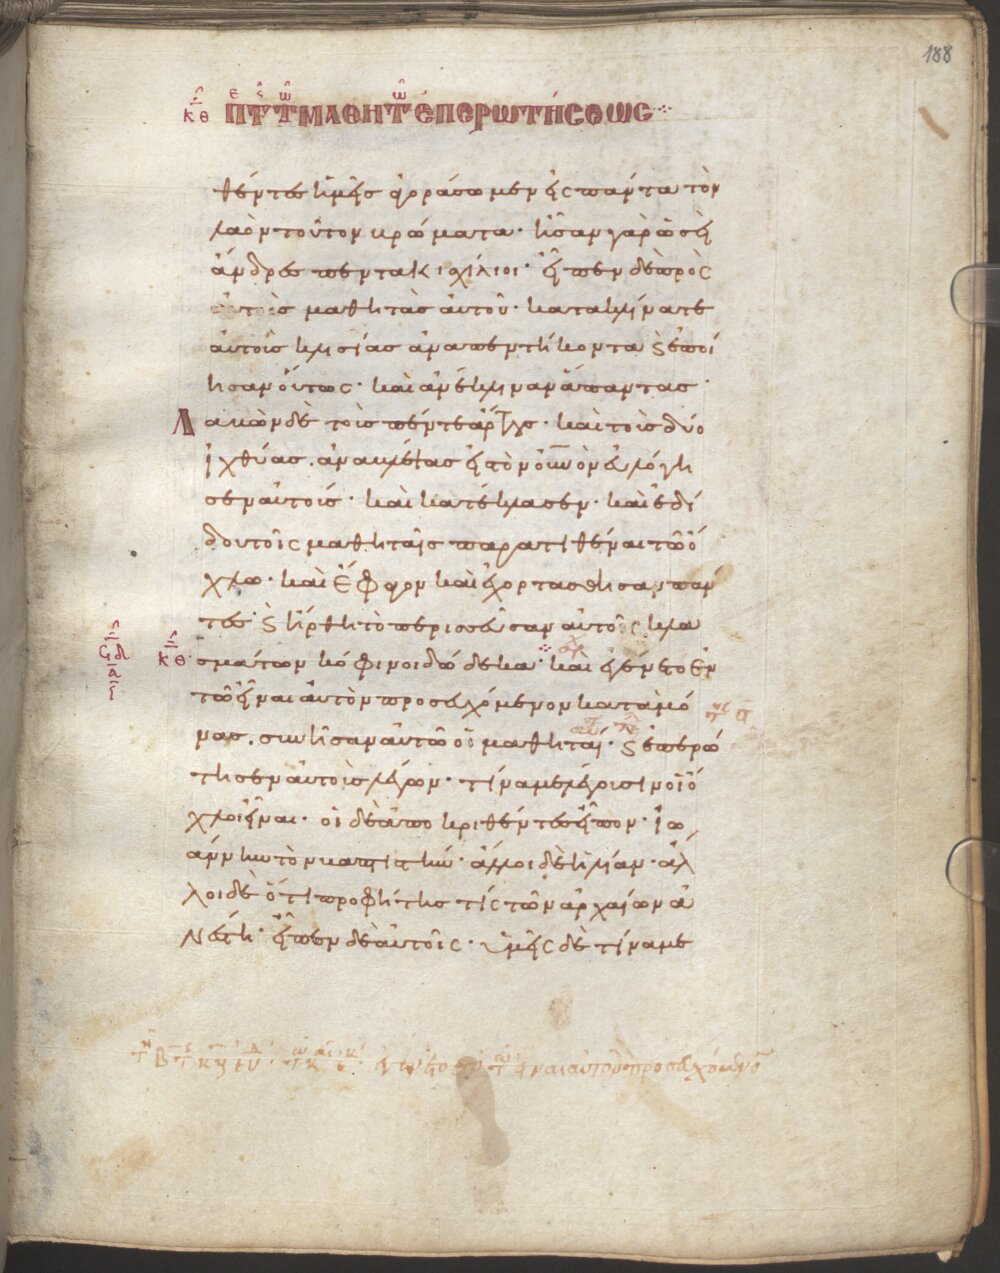 188
κθ περὶ τῆς τῶν μαθητῶν ἐπερωτήσεως
θέντες ἡμεῖς ἀγοράσωμεν εἰς πάντα τὸν
λαὸν τοῦτον βρώματα· ἦσαν γὰρ ὡσεὶ
ἄνδρες πεντακισχίλιοι· εἶπεν δὲ πρὸς
τοὺς μαθητὰς αὐτοῦ· κατακλίνατε
αὐτοὺς κλισίας ἀνα πεντήκοντα ϛ ἐποί
ησαν οὕτως· καὶ ἀνέκλιναν ἅπαντας·
Λαβὼν δὲ τοὺς πέντε ἄρτους· καὶ τοὺς δύο
ἰχθύας. ἀναβλέψας εἰς τὸν οὐνὸν εὐλόγη
σεν αὐτούς· καὶ κατέκλασεν· καὶ ἐδί
δου τοῖς μαθηταῖς παρατιθέναι τῶ ὄ
χλω· καὶ ἔφαγον καὶ ἐχορτάσθησαν πάν
τες· ϛ ἤρθη τὸ περισσεῦσαν αὐτοῖς κλα
σμάτων κόφινοι δώδεκα· καὶ ἐγένετο ἐν
τῶ εἶναι αὐτὸν προσευχόμενον καταμό
νας. συνῆσαν αὐτῶ οἱ μαθηταί· ϛ ἐπερώ
τησεν αὐτοὺς λέγων· τίνα με λέγουσιν οἱ ὄ
χλοι εἶναι· οἱ δὲ ἀποκριθέντες εἶπον· ἰω
άννην τὸν βαπτιστήν· ἄλλοι δὲ ἠλίαν· ἄλ
λοι δὲ ὅτι προφήτης τίς τῶν ἀρχαίων ἀ
νέστη· εἶπεν δὲ αὐτοῖς· ὑμεῖς δὲ τίνα με